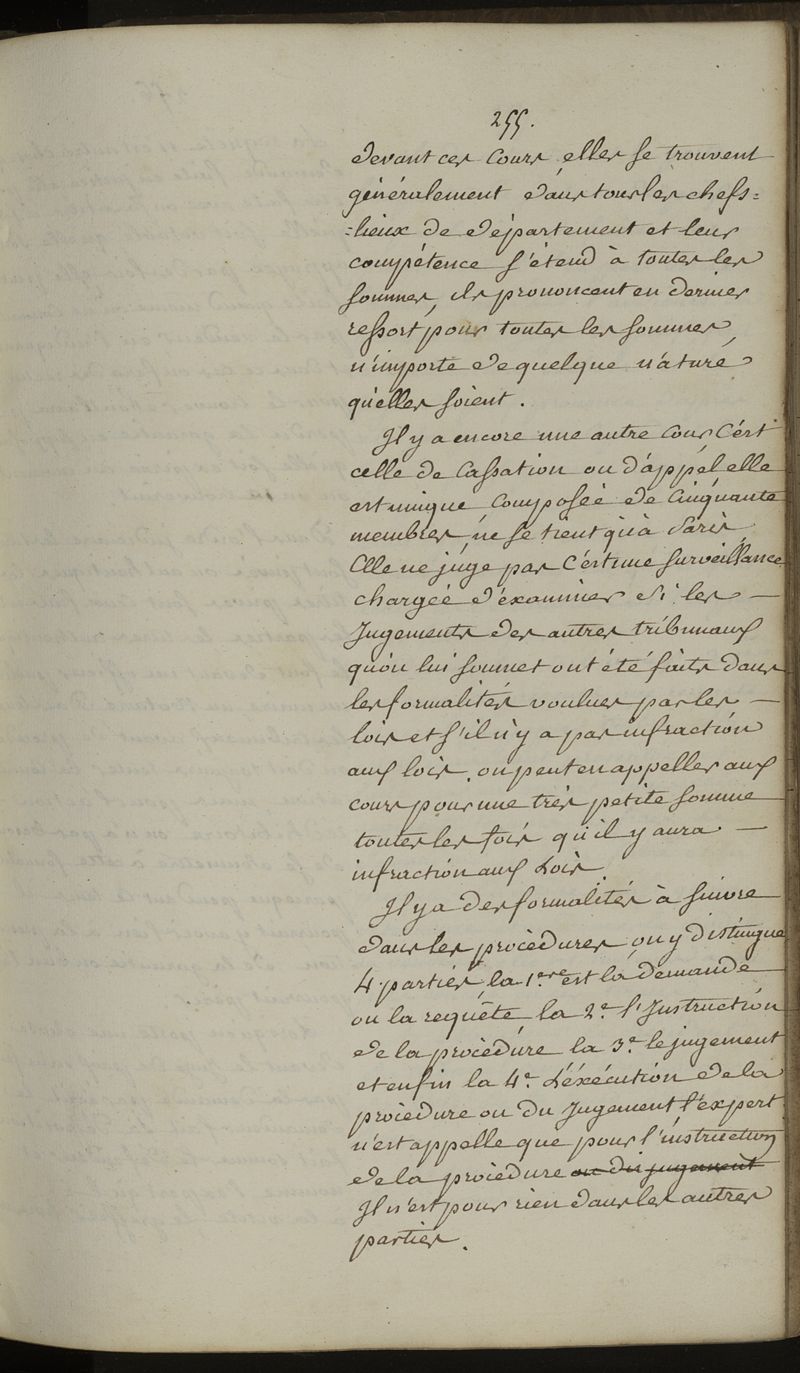 255.
devant ces Cours, elles se trouvent
généralement dans tous les chefs=
=lieux de département et leur
compétence s'étend à toutes les
sommes, ils prononcent en dernier
ressort pour toutes les sommes,
n'importe de quelque naturé
qu'elles soient.
Il y a encore une autre Cour C'ést
celle de Cassation ou d'appél elle
est unique, Composéé de Cinquante
membres, ne se tient qu'à Paris,
Elle ne juge pas C'est une surveillance
chargéé d'éxaminer si les —
Jugements des autres tribunaux
qu'on lui soumet ont été faits dans
les formalités voulues par les —
lois et s'il n'y a pas infractión
aux lois. on peut en appeller aux
cours pour une très petite somme
toutes les fois qu'il y aura —
infractión aux Lois.
Il y a des formalités à suivre
dans les procédures, on y distingue
4 partiés, la 1.ere est la demande
ou la requête la 2.e l'Instructión
de la procédure la 3.e le jugement
et enfin la 4.e L'éxécution de la
procédure ou du Jugement l'expert
n'est appelle que pour l'instruction
de la procédure ou du jugement
Il n'est pour rien dans les autres
partiés.